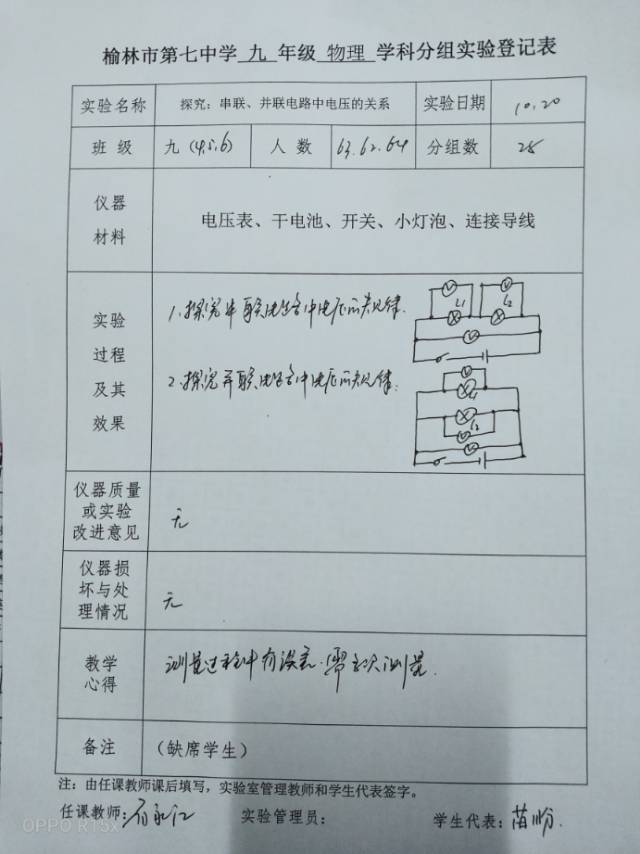 榆林市第七中学 九 年级 物理 学科分组实验登记表
实验名称 探究：串联、并联电路中电压的关系 实验日期 10.20
班 级 九（4,5,6） 人 数 63.62.64 分组数 28
仪器
材料
电压表、干电池、开关、小灯泡、连接导线
实验
过程
及其
效果
1.探究串联电路中电压的规律.
V V
L1 L2
V
2.探究并联电路中电压的规律.
V
L1
L2
V
V
仪器质量
或实验
改进意见
无
仪器损
坏与处
理情况
无
教学
心得
测量过程中有误差.需多次测量.
备注 （缺席学生）
注：由任课教师课后填写，实验室管理教师和学生代表签字。
任课教师： 实验管理员： 学生代表：苗
OPPO R15x